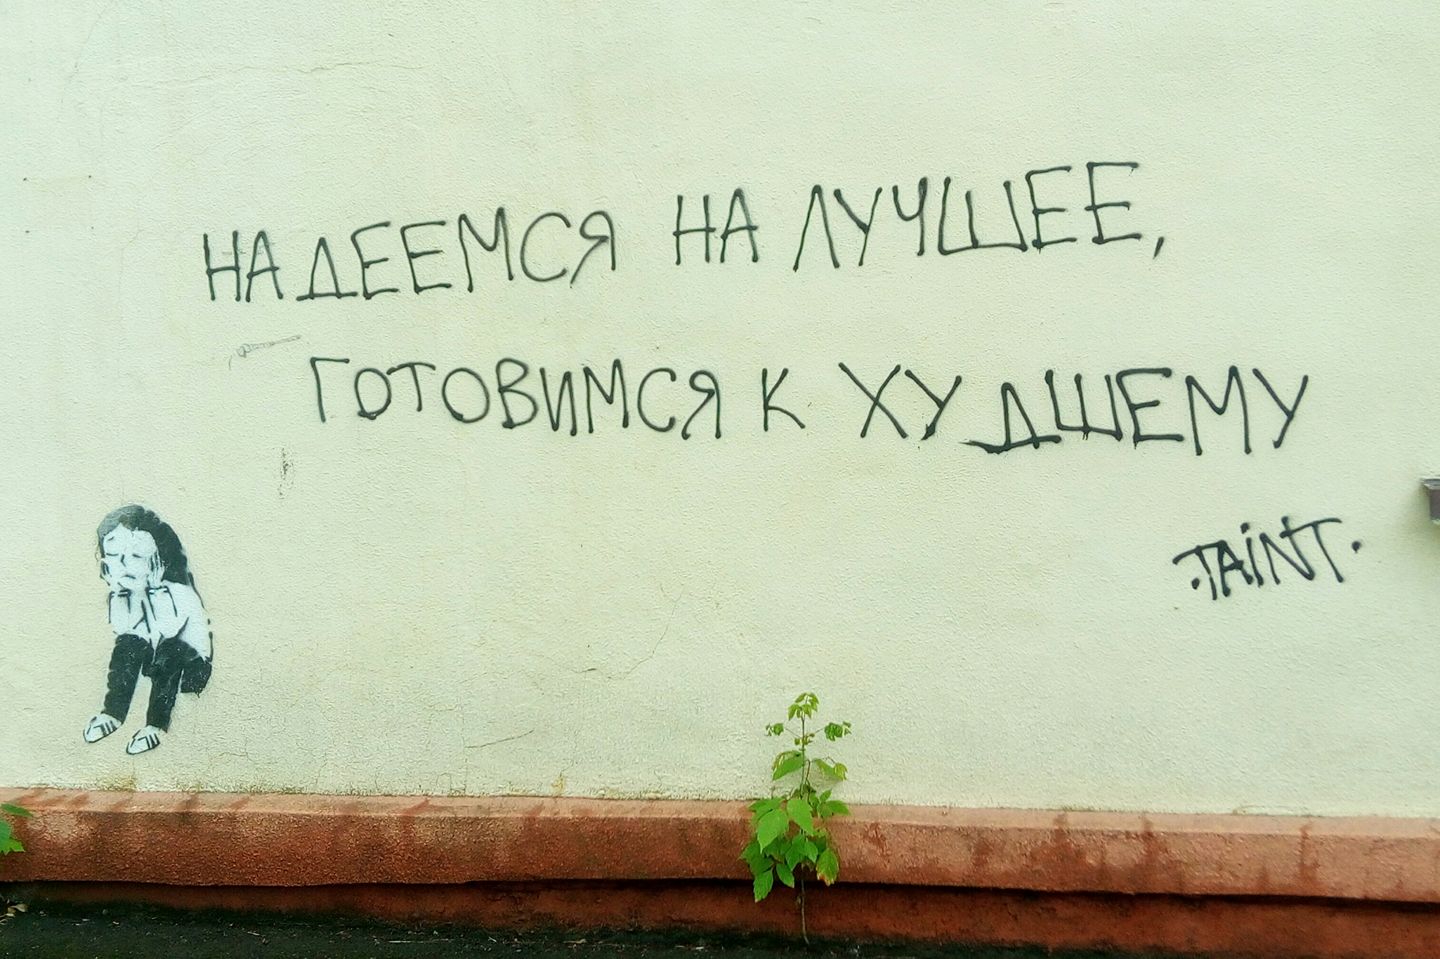 НАДЕЕМСЯ НА ЛУЧШЕЕ,
ГОТОВИМСЯ К ХУДШЕМУ
·TAiNT·